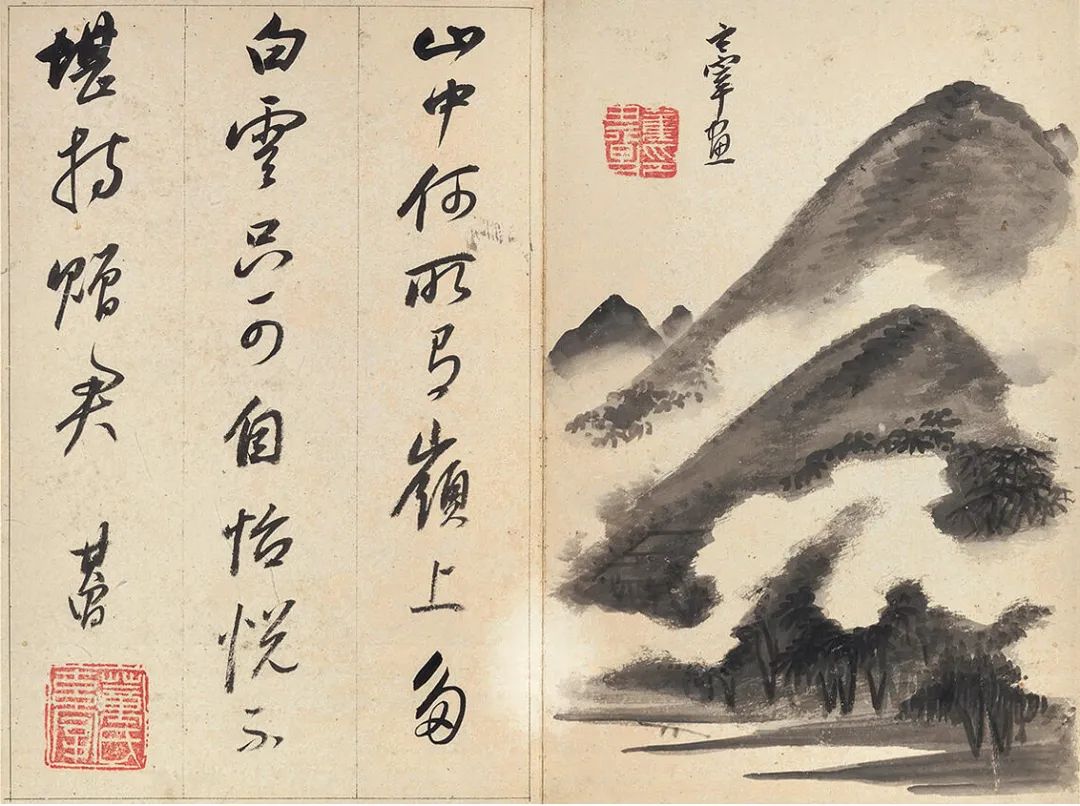 玄宰畫
山中何所有嶺上多
白雲只可自怡悅不
堪持贈君 其昌